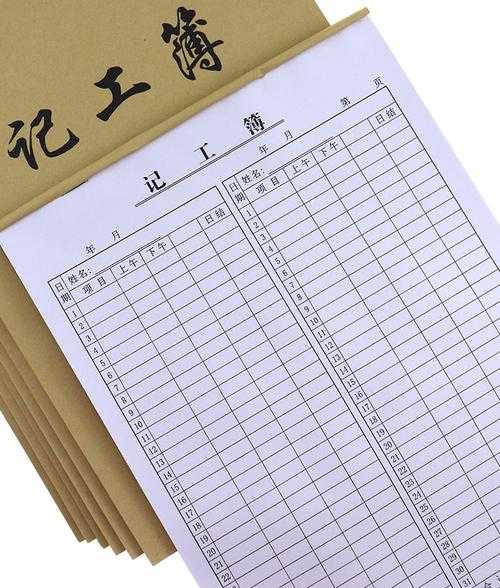 记工簿
记工簿
第 页
年 月
日期 姓名: 日结
项目 上午 下午
1
2
3
4
5
6
7
8
9
10
11
12
13
14
15
16
17
18
19
20
21
22
年 月
日期 姓名: 日结
项目 上午 下午
1
2
3
4
5
6
7
8
9
10
11
12
13
14
15
16
17
18
19
20
21
22
23
24
25
26
27
28
29
30
31